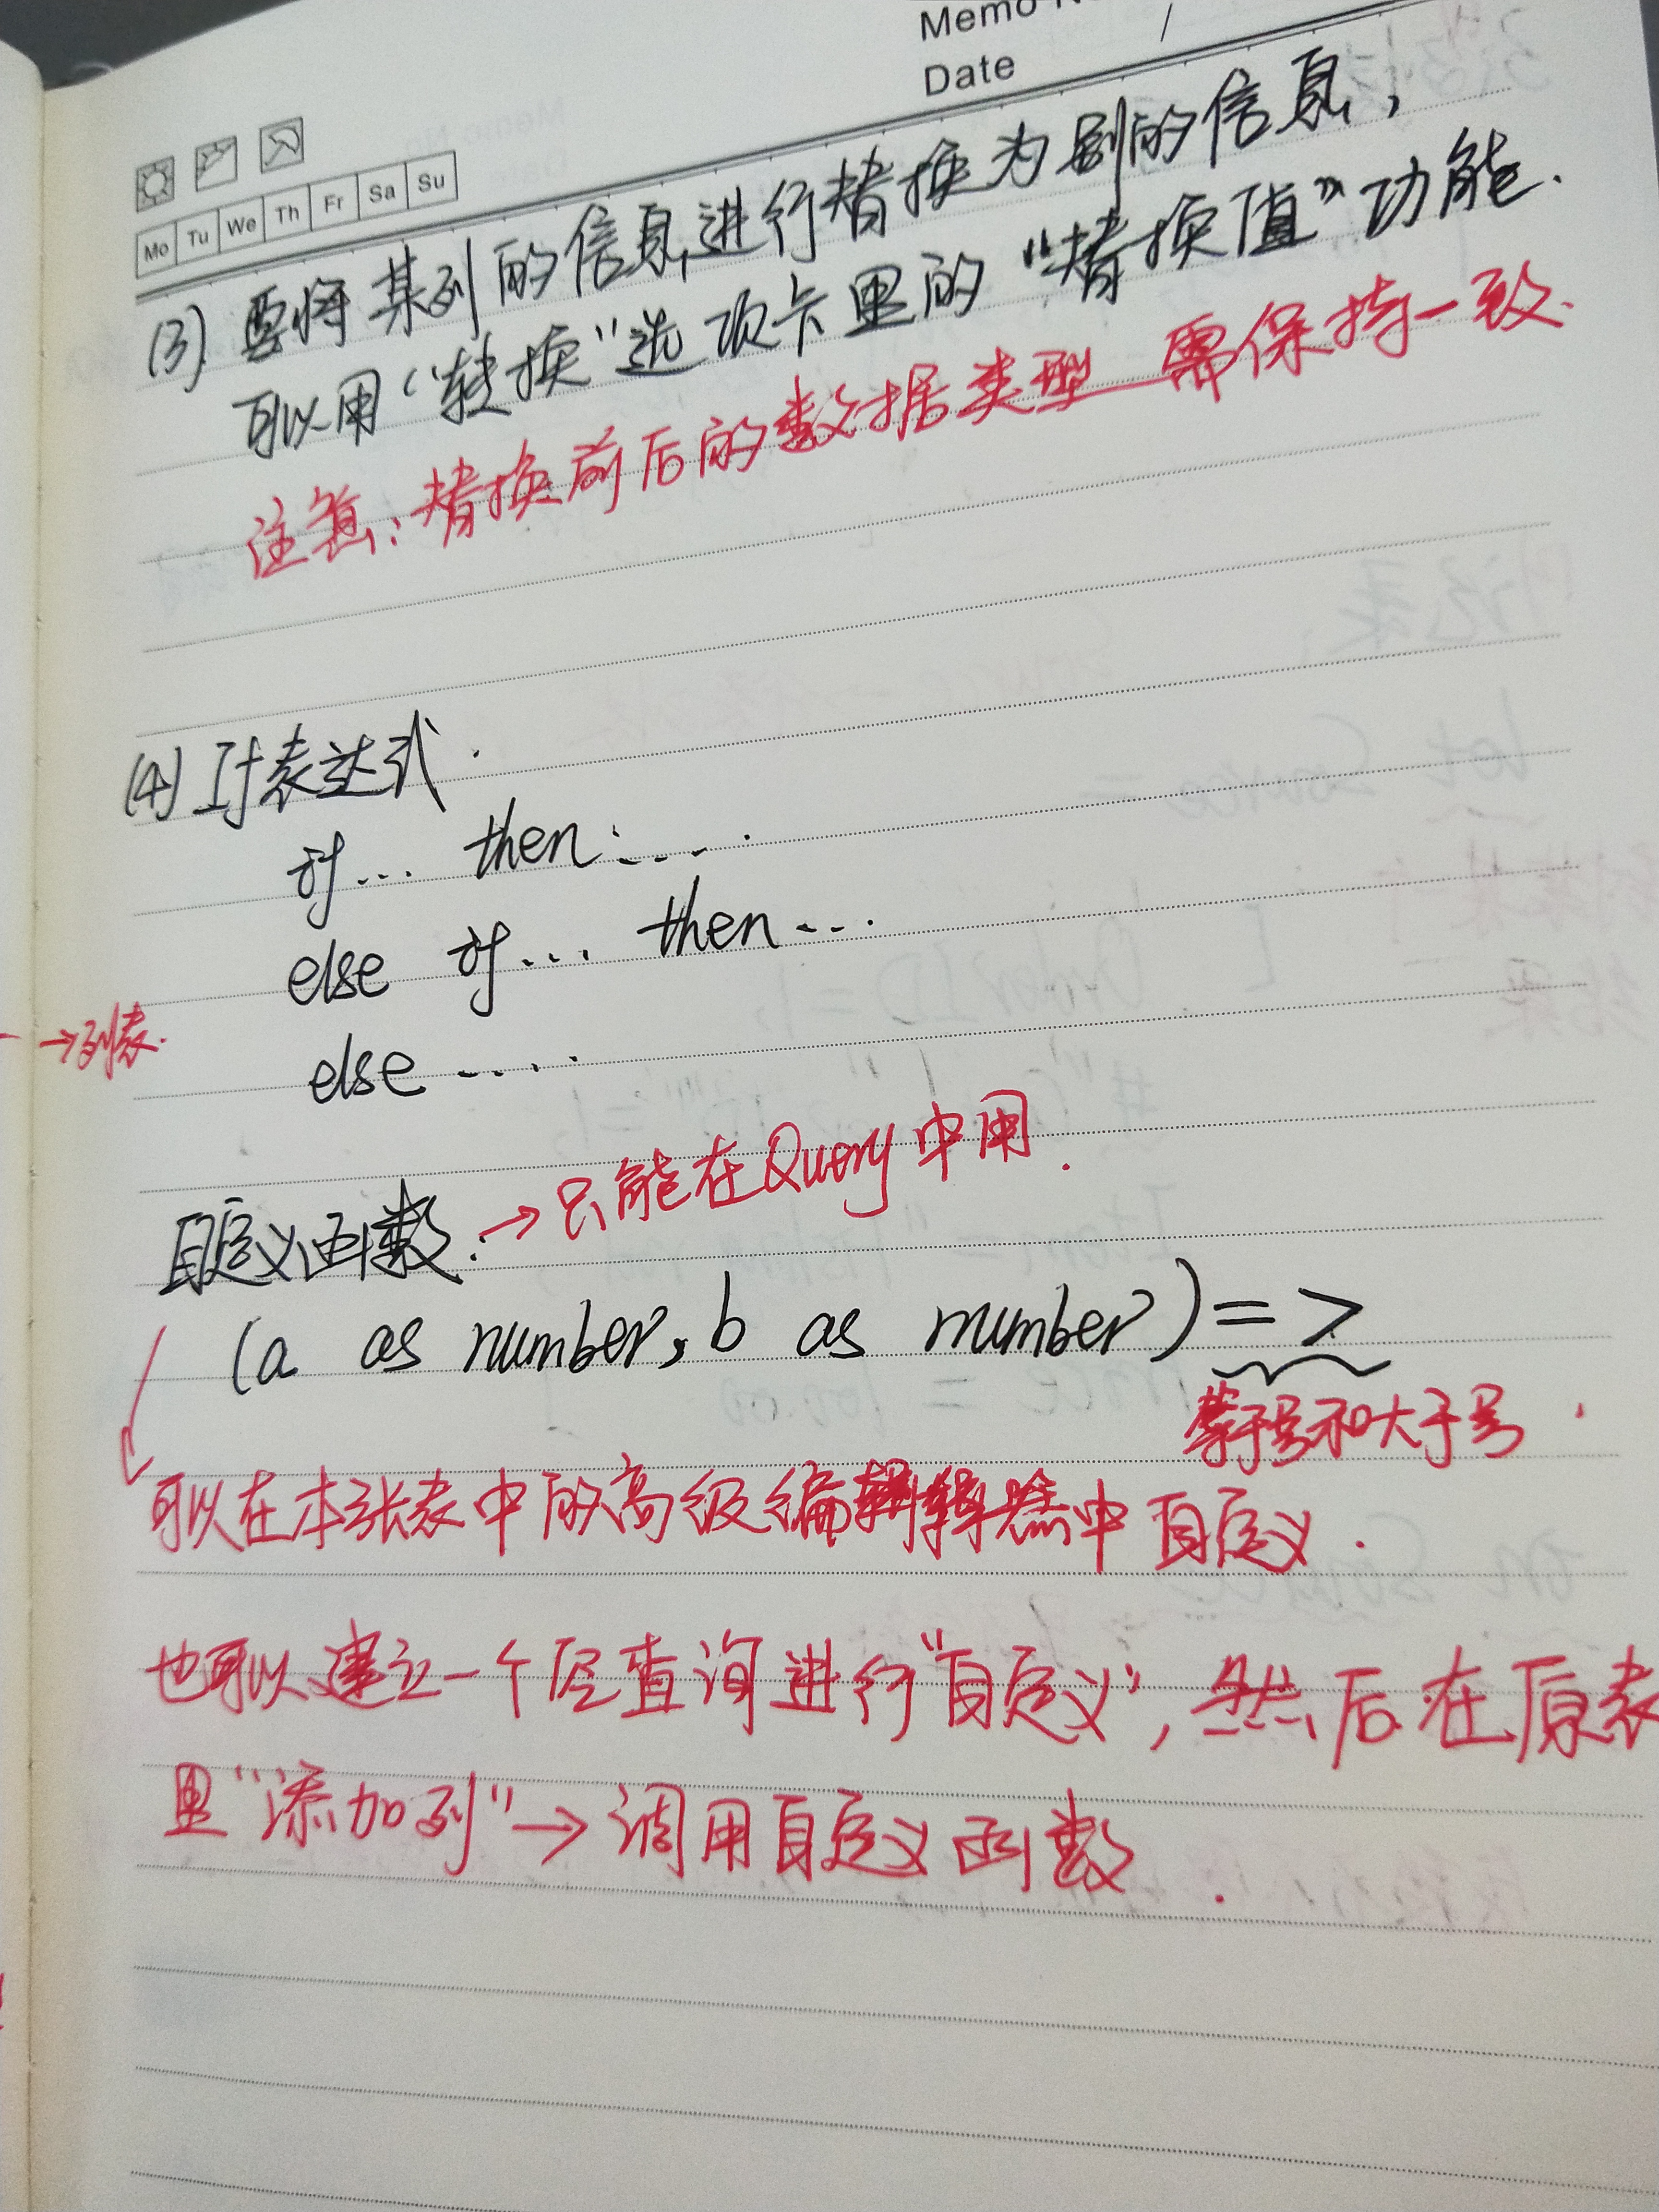 Memo N
Date /
Mo Tu We Th Fr Sa Su
(3) 要将某列的信息进行替换为别的信息，
可以用“转换”选项卡里的“替换值”功能.
注意：替换前后的数据类型需保持一致.
(4) If表达式.
if... then....
else if... then...
→列表.
else ....
自定义函数. →只能在Query中用.
(a as number, b as number) =>
等于号和大于号.
可以在本张表中的高级编辑器中自定义.
也可以建立一个空查询进行“自定义”，然后在原表
里“添加列”→调用自定义函数.